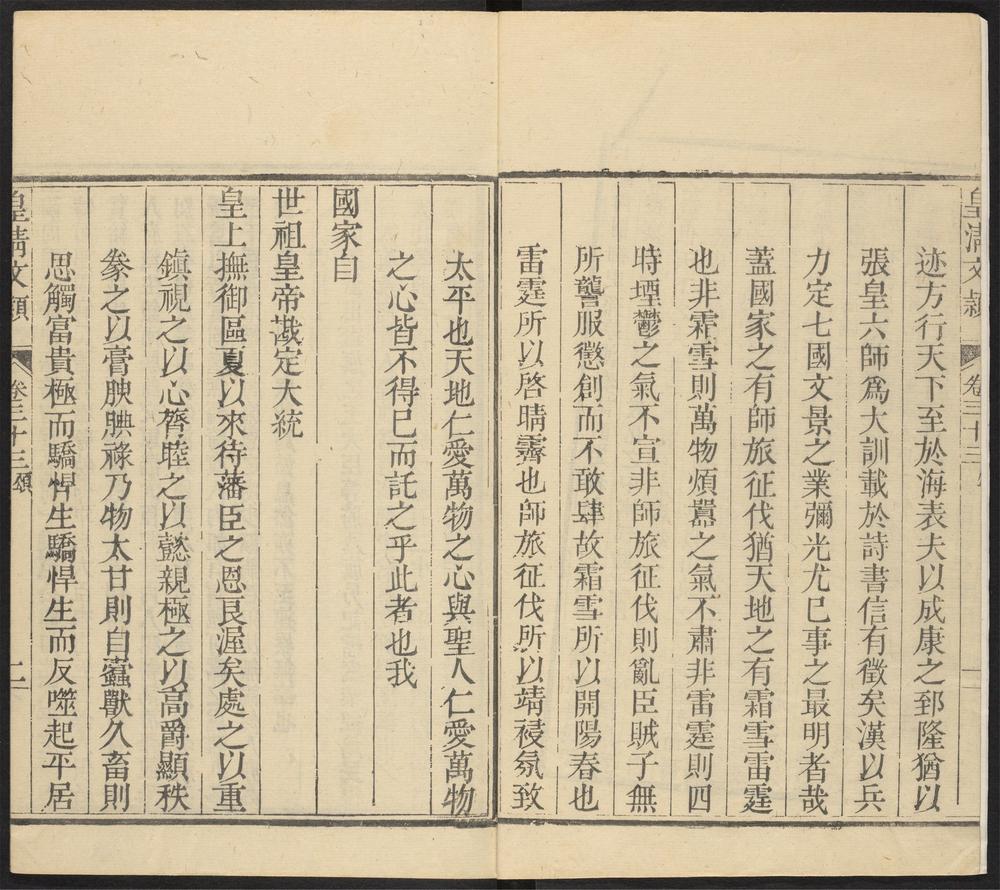 皇淸文穎 卷三十三
迹方行天下至於海表夫以成康之郅隆猶以
張皇六師爲大訓載於詩書信有徵矣漢以兵
力定七國文景之業彌光尤巳事之最明者哉
蓋國家之有師旅征伐猶天地之有霜雪雷霆
也非霜雪則萬物煩囂之氣不肅非雷霆則四
時堙鬱之氣不宣非師旅征伐則亂臣賊子無
所讋服懲創而不敢肆故霜雪所以開陽春也
雷霆所以啓晴霽也師旅征伐所以靖祲氛致
太平也天地仁愛萬物之心與聖人仁愛萬物
之心皆不得已而託之乎此者也我
國家自
世祖皇帝戡定大統
皇上撫御區夏以來待藩臣之恩良渥矣處之以重
鎭視之以心膂睦之以懿親極之以高爵顯秩
豢之以膏腴腆祿乃物太甘則自蠹獸久畜則
思觸富貴極而驕悍生驕悍生而反噬起平居
皇淸文穎 卷三十三頌 二